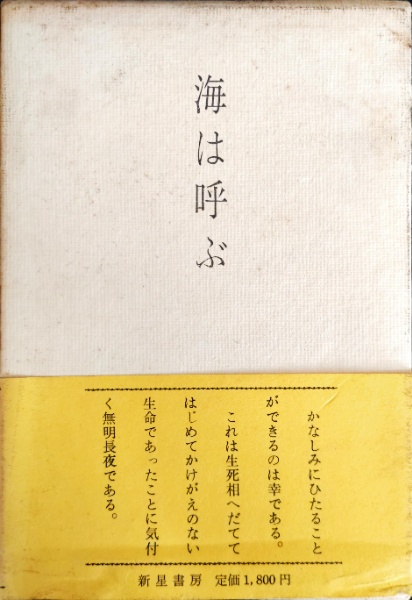 海は呼ぶ
かなしみにひたること
ができるのは幸である。
これは生死相へだてて
はじめてかけがえのない
生命であったことに気付
く無明長夜である。
新星書房 定価1,800円